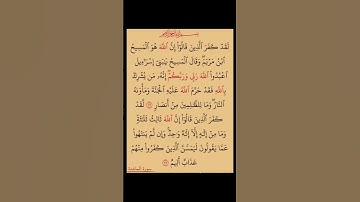 بسم الله الرحمن الرحيم
لَقَدْ كَفَرَ ٱلَّذِينَ قَالُوٓا۟ إِنَّ ٱللَّهَ هُوَ ٱلْمَسِيحُ
ٱبْنُ مَرْيَمَ ۖ وَقَالَ ٱلْمَسِيحُ يَٰبَنِىٓ إِسْرَٰٓءِيلَ
ٱعْبُدُوا۟ ٱللَّهَ رَبِّى وَرَبَّكُمْ ۖ إِنَّهُۥ مَن يُشْرِكْ
بِٱللَّهِ فَقَدْ حَرَّمَ ٱللَّهُ عَلَيْهِ ٱلْجَنَّةَ وَمَأْوَىٰهُ
ٱلنَّارُ ۖ وَمَا لِلظَّٰلِمِينَ مِنْ أَنصَارٍ ۝ لَّقَدْ
كَفَرَ ٱلَّذِينَ قَالُوٓا۟ إِنَّ ٱللَّهَ ثَالِثُ ثَلَٰثَةٍ ۘ
وَمَا مِنْ إِلَٰهٍ إِلَّآ إِلَٰهٌ وَٰحِدٌ ۚ وَإِن لَّمْ يَنتَهُوا۟
عَمَّا يَقُولُونَ لَيَمَسَّنَّ ٱلَّذِينَ كَفَرُوا۟ مِنْهُمْ
عَذَابٌ أَلِيمٌ ۝
سورة المائدة